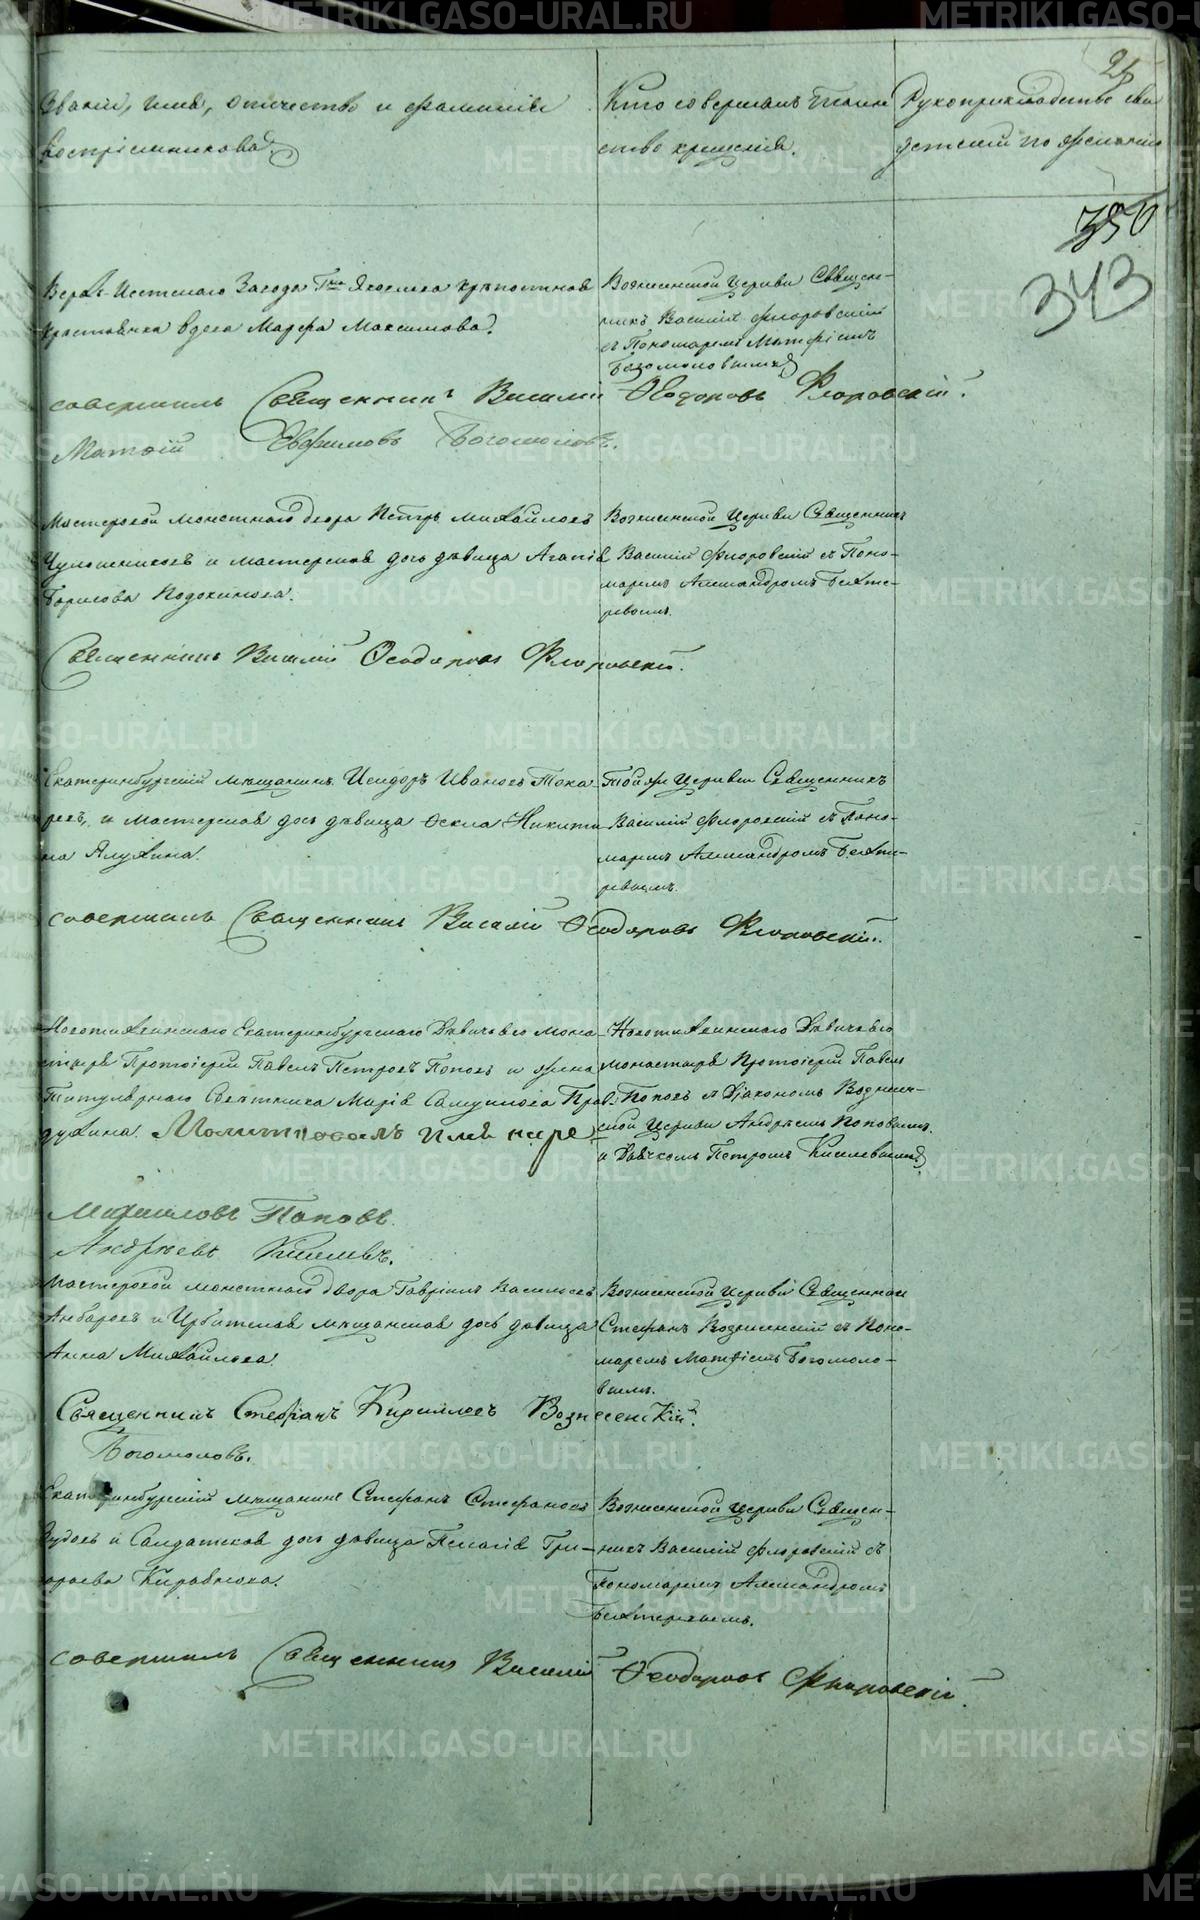 Званіе, имя, отчество и фамилія
воспріемниковъ
Кто совершалъ таин
ство крещенія.
Рукоприкладство сви
детелей по желанію
350
343
Верхъ-Исетскаго Завода Гна Яковлева крѣпостная
крестьянка вдова Марфа Максимова.
Вознесенской Церкви Священ-
никъ Василій Флоровскій
съ Пономаремъ Матфіемъ
Богомоловымъ
совершилъ Священникъ Василій Ѳеодоровъ Флоровскій.
Матѳій Евфимовъ Богомоловъ.
Мастеровой монетнаго двора Петръ Михайловъ
Чулошниковъ и мастерская дочь дѣвица Агапія
Борисова
Вознесенской Церкви Священникъ
Василій Флоровскій съ Поно-
маремъ Александромъ Бехте-
ревымъ.
Священникъ Василій Ѳеодоровъ Флоровскій.
Екатеринбургскій мѣщанинъ Исидоръ Ивановъ Тока-
ревъ, и мастерская дочь дѣвица Ѳекла Никити-
на Ялухина.
Той же Церкви Священникъ
Василій Флоровскій съ Поно-
маремъ Александромъ Бехте-
ревымъ.
совершилъ Священникъ Василій Ѳеодоровъ Флоровскій.
Новотихвинскаго Екатеринбургскаго Дѣвичьяго мона-
стыря Протоіерей Павелъ Петровъ Поповъ и жена
Титулярнаго Совѣтника Марія Самуилова
Молитвовалъ имя наре
Новотихвинскаго Дѣвичьяго
монастыря Протоіерей Павелъ
Поповъ съ Діакономъ Вознесен-
ской Церкви Андреемъ Поповымъ.
и Дьячкомъ Петромъ Киселевымъ
Михаиловъ Поповъ.
Андреевъ Киселевъ.
Мастеровой монетнаго двора Гавріилъ Васильевъ
Анбаровъ и Ирбитская мѣщанская дочь дѣвица
Анна Михайлова.
Вознесенской Церкви Священникъ
Стефанъ Вознесенскій съ Поно-
маремъ Матфіемъ Богомоло-
вымъ.
Священникъ Стефанъ Кириловъ Вознесенскій.
Богомоловъ.
Екатеринбургскій мѣщанинъ Стефанъ Стефановъ
Зубовъ и Салдатская дочь дѣвица Пелагія Гри-
горьева
Вознесенской Церкви Священ-
никъ Василій Флоровскій съ
Пономаремъ Александромъ
Бехтеревымъ.
совершилъ Священникъ Василій Ѳеодоровъ Флоровскій.
METRIKI.GASO-URAL.RU